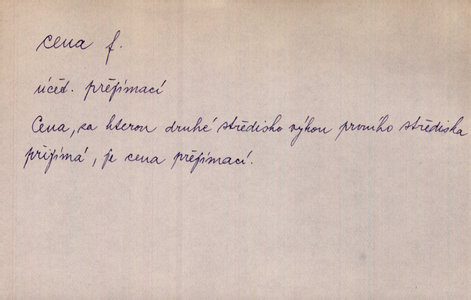 cena f.
účed. přejímací
Cena, za kterou druhé středisko výkon prvního střediska
přijímá, je cena přejímací.